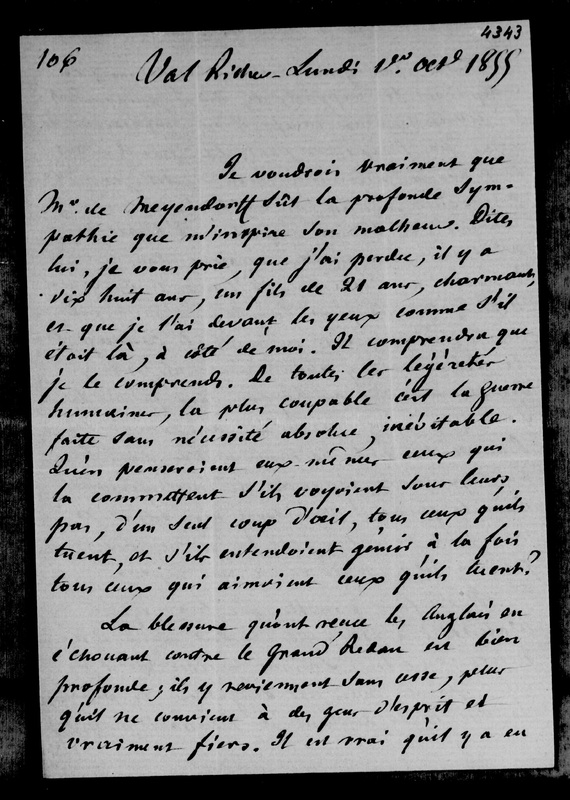 106
4343
Val Richer - Lundi 1er. Octe 1855
Je voudrois vraiment que
Mr. de Meyendorff sût la profonde sym-
pathie que m'inspire son malheur. Dites
lui, je vous prie, que j'ai perdu, il y a
dix huit ans, un fils de 21 ans, charmant,
et que je l'ai devant les yeux comme s'il
étoit là, à côté de moi. Il comprendra que
je le comprends. De toutes les légéretés
humaines, la plus coupable c'est la guerre
faite sans nécessité absolue, inévitable.
Qu'en penseroient eux-mêmes ceux qui
la commettent s'ils voyoient sous leurs
pas, d'un seul coup d'œil, tous ceux qu'ils
tuent, et s'ils entendoient gémir à la fois
tous ceux qui aimoient ceux qu'ils tuent?
La blessure qu'ont reçue les Anglais en
échouant contre le grand Redan est bien
profonde; ils y reviennent sans cesse, plus
qu'il ne convient à des gens d'esprit et
vraiment fiers. Il est vrai qu'il y a eu